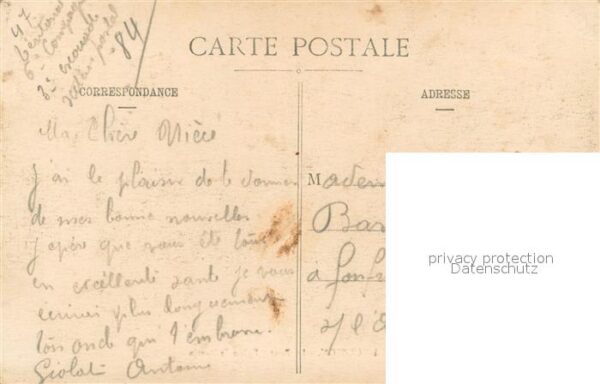 47
territorial
6e Compagnie
3e escouade
secteur postal
84
CARTE POSTALE
CORRESPONDANCE
ADRESSE
Ma Chère Nièce
J'ai le plaisir de te donner
de mes bonne nouvelles
j'espère que vous ête tous
en excellente santé je vous
écrirai plus longuement
ton oncle qui t'embrasse.
Giolat Antoine
Madem
Bar
à fonf
privacy protection
Datenschutz